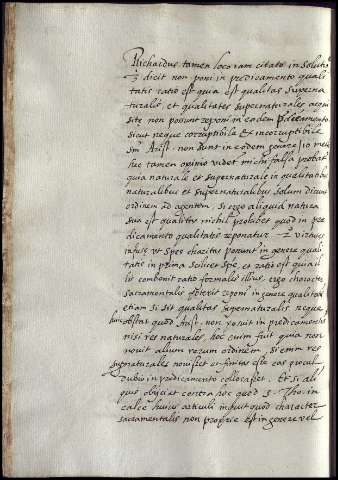 Richardus tamen loco iam citato in solutio
dicit non poni in predicamento quali
tatis ratio est quia est qualitas superna
turalis et qualitates supernaturales acqui
site non possunt reponi in eodem predicamento
sicut neque corruptibile et incorruptibile
Arist. non sunt in eodem genere
hec tamen opinio videt michi falsa
quia naturale et supernaturale in qualitatibus
naturalibus et supernaturalibus solum dicunt
ordinem ad agentem si ergo aliquid natura
sua est qualitas nichil prohibet quod in pre
dicamento qualitatis reponatur virtutes
infusę ut spes charitas ponunt in genere quali
tatis in prima et ratio est quia il
lis ratio formalis illius. ergo character
sacramentalis poterit reponi in genere qualitatis
etiam si sit qualitas supernaturalis neque
obstat quod Arist. non posuit in predicamento
nisi res naturales. hoc enim fuit quia non
novit alium rerum ordinem, si enim res
supnaturales novisset et finitas esse eas procul
dubio in predicamento collocasset. Et si ali
quis obiiciat contra hoc quod S. Tho. in
calce huius articuli inquit quod character
sacramentalis non proprie est in genere vel